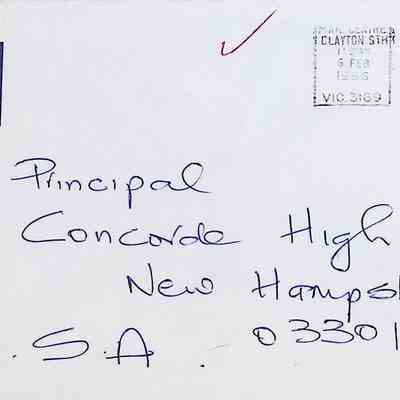 MAIL CENTRE
CLAYTON STH
6 FEB
1986
VIC. 3169
Principal
Concorde High
New Hampsh
.S.A.
03301